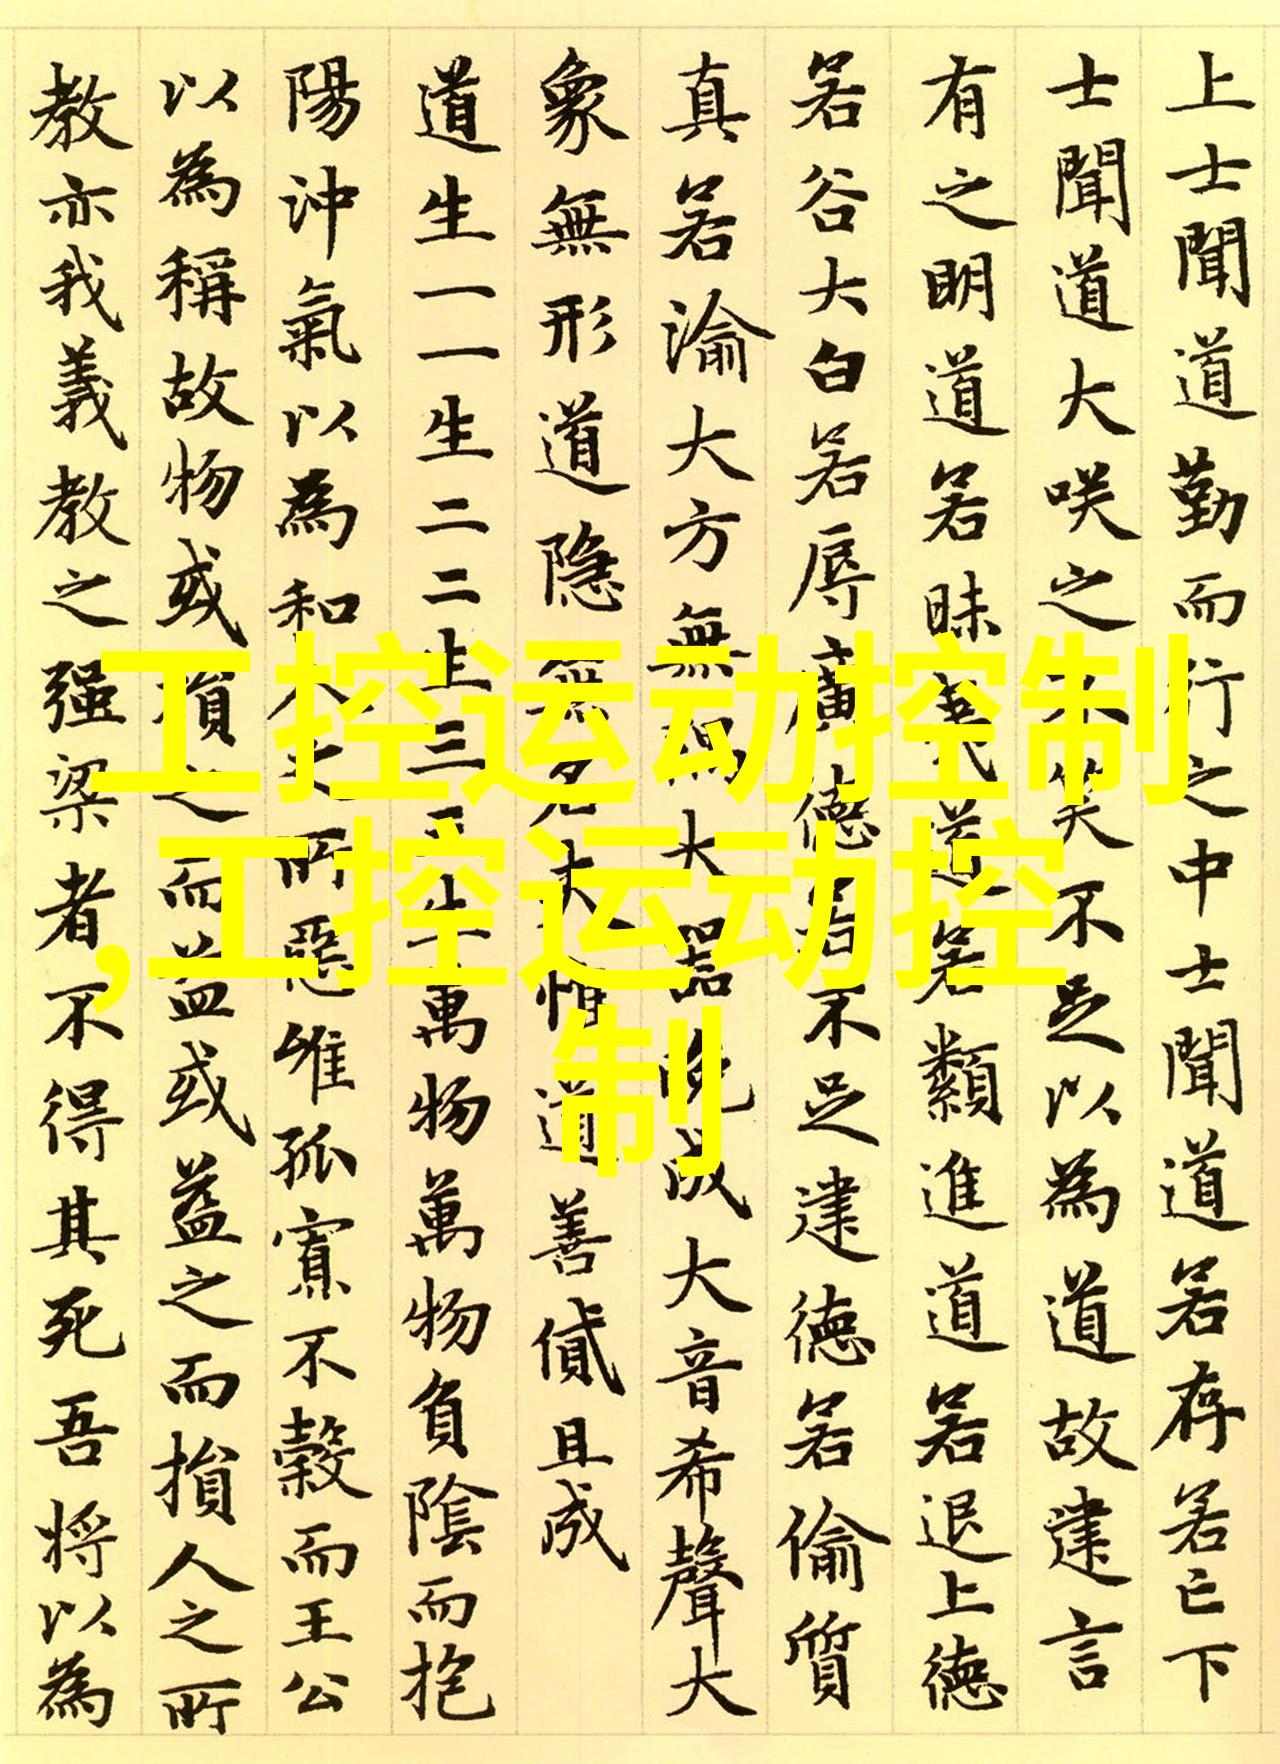 上士聞道勤而行之中士聞道若存若亡下
士聞道大咲之不笑不足以為道故建言
有之明道若昧夷道若纇進道若退上德
若谷大白若辱廣德若不足建德若偷質
真若渝大方無隅大器晚成大音希聲大
象無形道隐無名夫惟道善貸且成
道生一一生二二生三三生萬物萬物負陰而抱
陽沖氣以為和人之所惡唯孤寡不穀而王公
以為稱故物或損之而益或益之而損人之所
教亦我義教之强梁者不得其死吾将以為
工控运动控制
,工控运动控
制